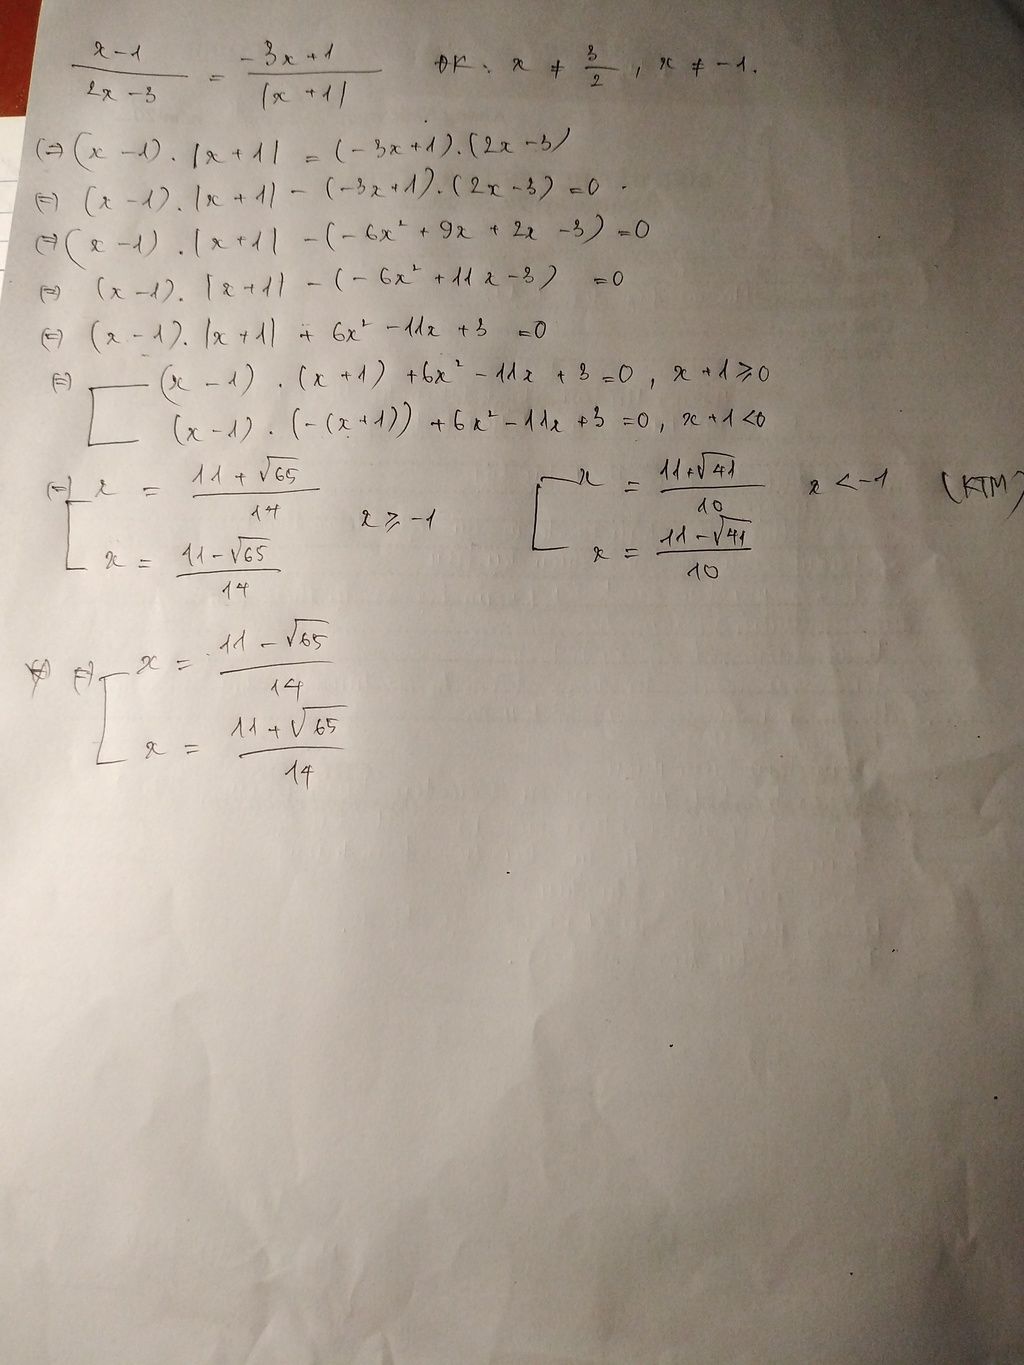 x-1/2x-3 = -3x+1/|x+1| ĐK: x ≠ 3/2, x ≠ -1.
(=) (x-1).|x+1| = (-3x+1).(2x-3)
(=) (x-1).|x+1| - (-3x+1).(2x-3) =0
(=) (x-1).|x+1| -(-6x² + 9x + 2x -3) =0
(=) (x-1).|x+1| -(-6x² +11x-3) =0
(=) (x-1).|x+1| + 6x² -11x +3 =0
(=) [ (x-1).(x+1) +6x² -11x +3 =0, x+1≥0
(x-1).(-(x+1)) +6x² -11x +3 =0, x+1<0
(=) [ x = 11+√65/14
x = 11-√65/14
x ≥ -1
[ x = 11+√41/10
x = 11-√41/10
x < -1 (KTM)
(=) [ x = 11-√65/14
x = 11+√65/14